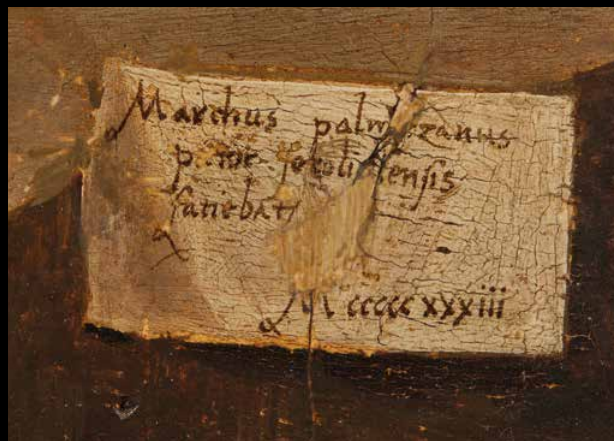 Marchus palmezanus
pictor foroliviensis
fatiebat
Mcccccxxxiii